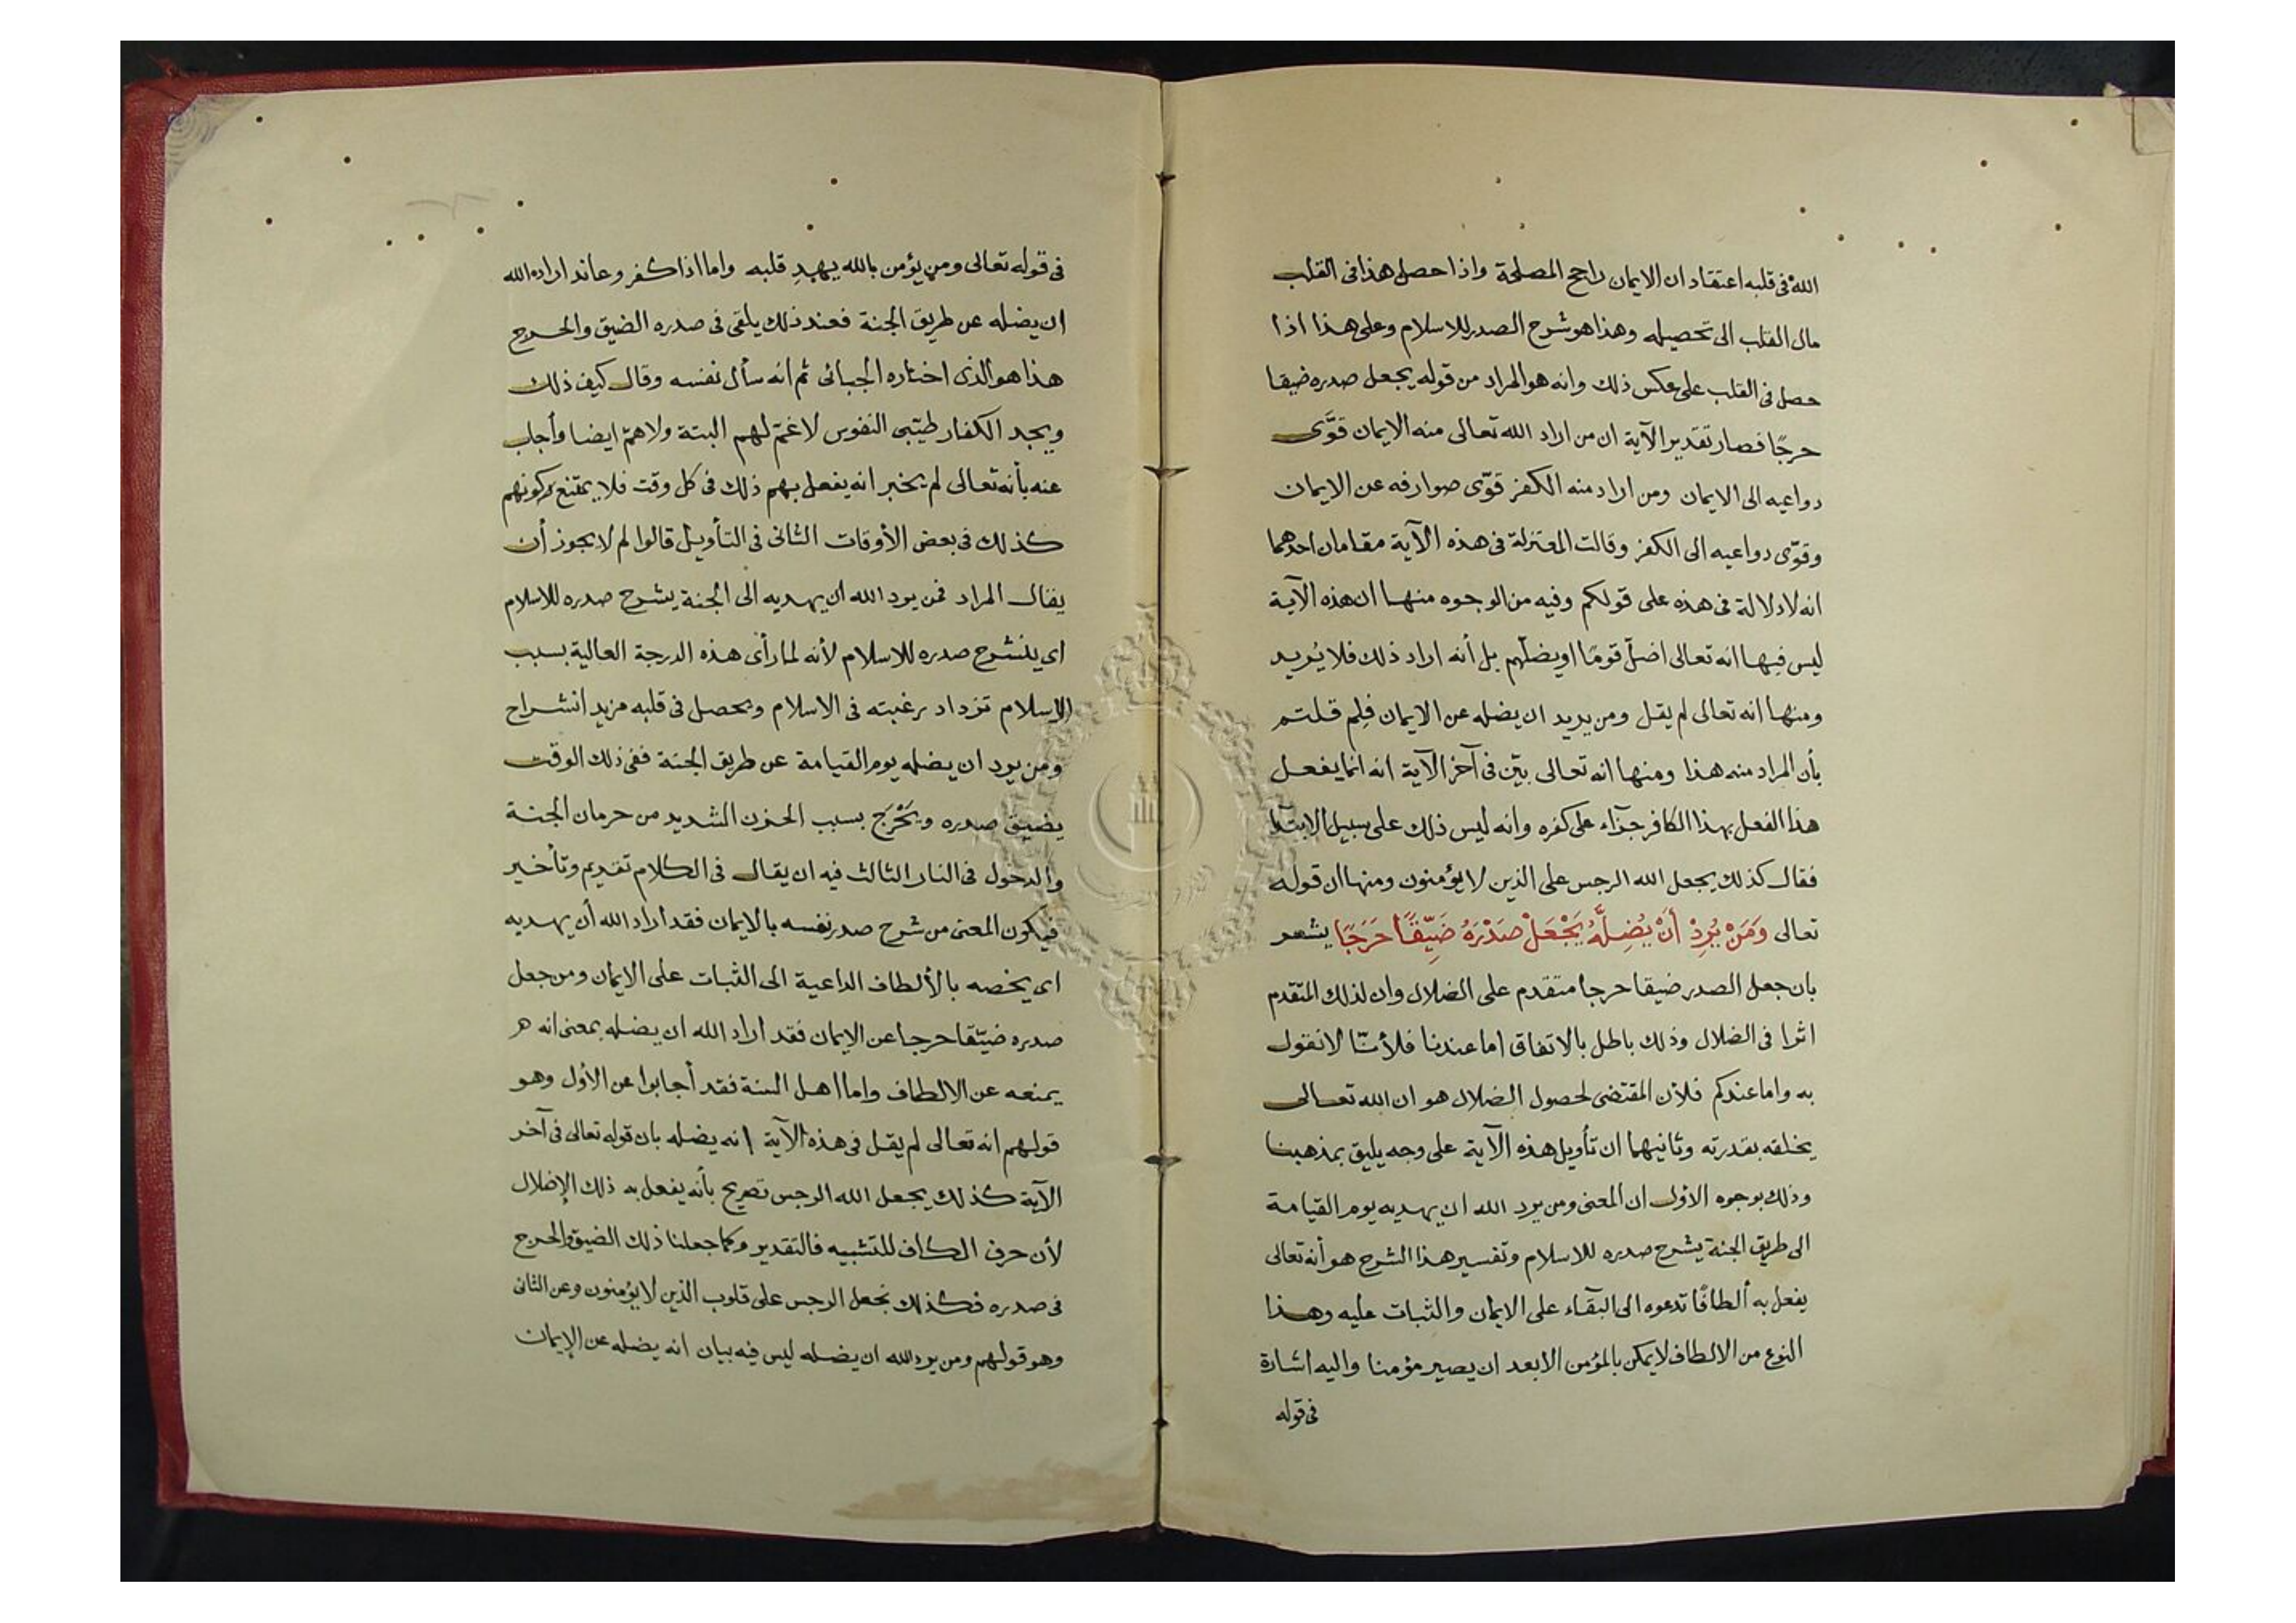 الله فى قلبه اعتقاد ان الايمان راجح المصلحة واذا حصل هذا فى القلب
مال القلب الى تحصيله وهذا هو شرح الصدر للاسلام وعلى هذا اذا
حصل فى القلب على عكس ذلك وانه هو المراد من قوله يجعل صدره ضيقا
حرجًا فصار تقدير الآية ان من اراد الله تعالى منه الايمان قوَّى
دواعيه الى الايمان ومن اراد منه الكفر قوّى صوارفه عن الايمان
وقوّى دواعيه الى الكفر وقالت المعتزلة فى هذه الآية مقامان احدهما
انه لا دلالة فى هذه على قولكم وفيه من الوجوه منها ان هذه الآية
ليس فيها انه تعالى اضلّ قومًا او يضلّهم بل أنه اراد ذلك فلا يُريد
ومنها انه تعالى لم يقل ومن يريد ان يضله عن الايمان فلِم قلتم
بأن المراد منه هذا ومنها انه تعالى بيّن فى آخر الآية انه انما يفعل
هذا الفعل بهذا الكافر جزآء على كفره وانه ليس ذلك على سبيل الابتدآ
فقال كذلك يجعل الله الرجس على الذين لا يؤمنون ومنها ان قوله
تعالى وَمَنْ يُرِدْ أَنْ يُضِلَّهُ يَجْعَلْ صَدْرَهُ ضَيِّقًا حَرَجًا يشعر
بان جعل الصدر ضيقا حرجا متقدم على الضلال وان لذلك المتقدم
اثرا فى الضلال وذلك باطل بالاتفاق اما عندنا فلأنّا لا نقول
به واما عندكم فلان المقتضى لحصول الضلال هو ان الله تعالى
يخلقه بقدرته وثانيهما ان تأويل هذه الآية على وجه يليق بمذهبنا
وذلك بوجوه الأول ان المعنى ومن يرد الله ان يهديه يوم القيامة
الى طريق الجنة يشرح صدره للاسلام وتفسير هذا الشرح هو أنه تعالى
يفعل به ألطافًا تدعوه الى البقآء على الايمان والثبات عليه وهذا
النوع من الالطاف لا يمكن بالمؤمن الا بعد ان يصير مؤمنا واليه اشارة
فى قوله
فى قوله تعالى ومن يؤمن بالله يهدِ قلبه واما اذا كفر وعاند اراد الله
ان يضله عن طريق الجنة فعند ذلك يلقى فى صدره الضيق والحرج
هذا هو الذى اختاره الجبائى ثم انه سأل نفسه وقال كيف ذلك
ويجد الكفار طيّبى النفوس لا غمّ لهم البتة ولا همّ ايضا وأجاب
عنه بأنه تعالى لم يخبر انه يفعل بهم ذلك فى كل وقت فلا يمتنع كونهم
كذلك فى بعض الأوقات الثانى فى التأويل قالوا لم لا يجوز أن
يقال المراد فمن يرد الله ان يهديه الى الجنة يشرح صدره للاسلام
اى ينشرح صدره للاسلام لأنه لما رأى هذه الدرجة العالية بسبب
الاسلام تزداد رغبته فى الاسلام ويحصل فى قلبه مزيد انشراح
ومن يرد ان يضله يوم القيامة عن طريق الجنة ففى ذلك الوقت
يضيق صدره ويَحْرَج بسبب الحزن الشديد من حرمان الجنة
والدخول فى النار الثالث فيه ان يقال فى الكلام تقديم وتأخير
فيكون المعنى من شرح صدر نفسه بالايمان فقد اراد الله أن يهديه
اى يخصه بالألطاف الداعية الى الثبات على الايمان ومن جعل
صدره ضيّقا حرجا عن الايمان فقد اراد الله ان يضله بمعنى انه
يمنعه عن الالطاف واما اهل السنة فقد أجابوا عن الأول وهو
قولهم انه تعالى لم يقل فى هذه الآية انه يضله بان قوله تعالى فى آخر
الآية كذلك يجعل الله الرجس تصريح بأنه يفعل به ذلك الإضلال
لأن حرف الكاف للتشبيه فالتقدير وكما جعلنا ذلك الضيق والحرج
فى صدره فكذلك نجعل الرجس على قلوب الذين لا يؤمنون وعن الثانى
وهو قولهم ومن يرد الله ان يضله ليس فيه بيان انه يضله عن الإيمان